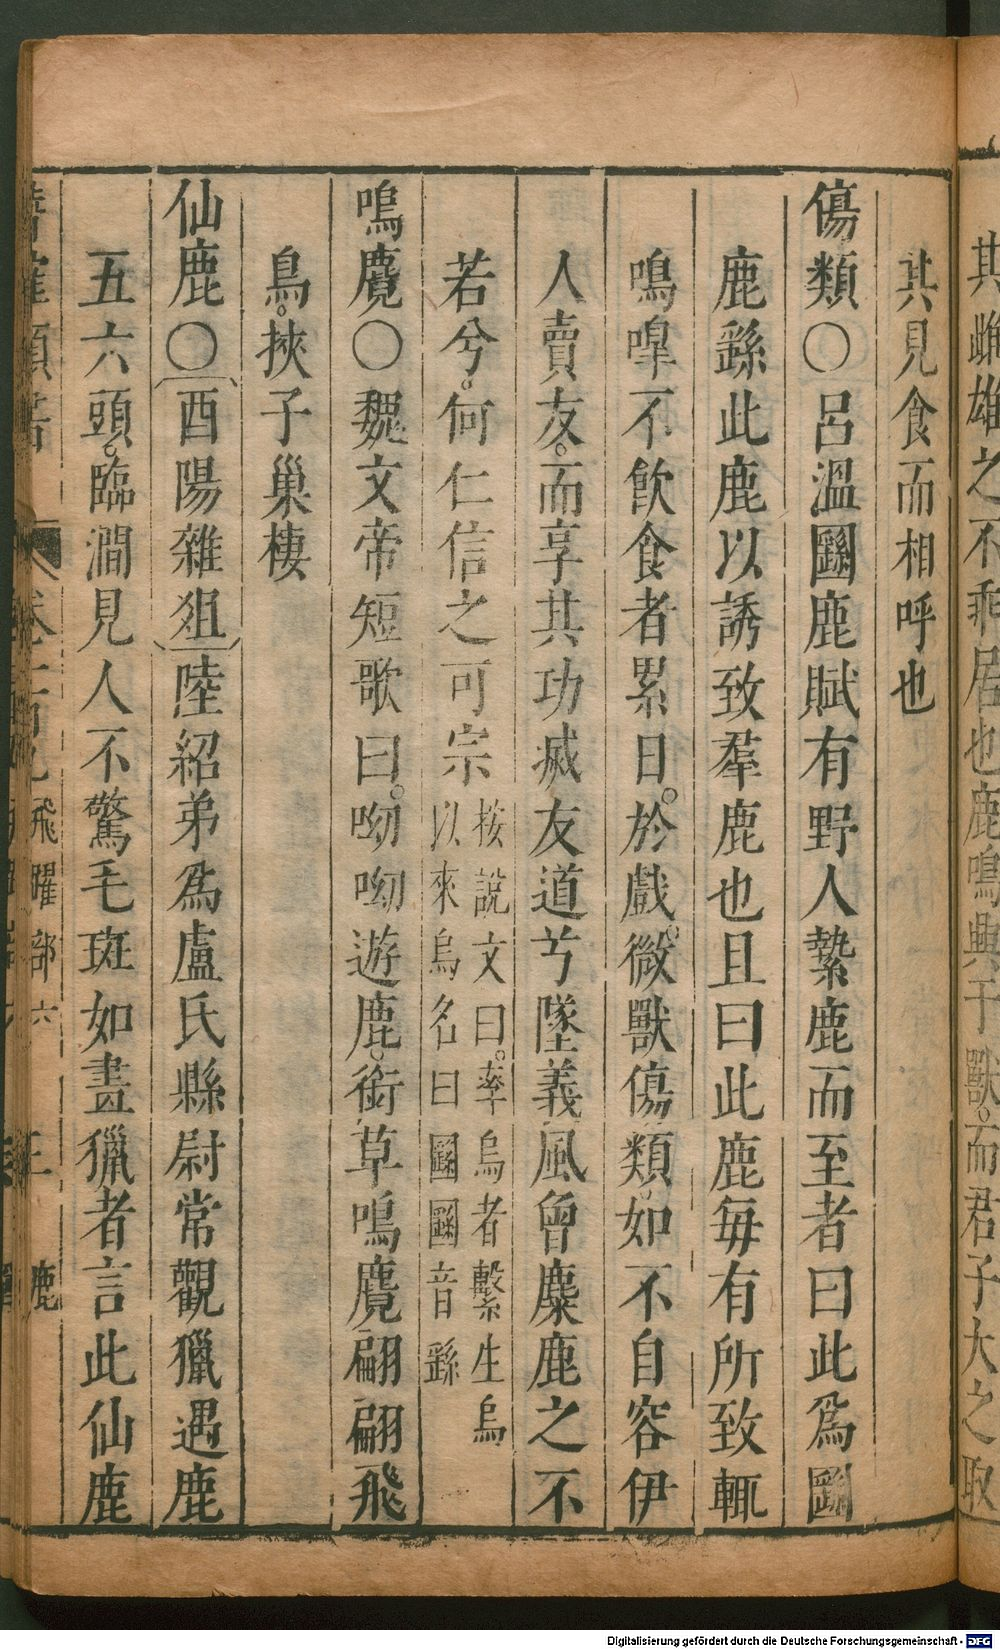 其雌雄之不乖居也鹿鳴興于獸。而君子大之取
其見食而相呼也
傷類○呂溫𡈙鹿賦有野人縶鹿而至者曰此爲𡈙
鹿繇此鹿以誘致羣鹿也且曰此鹿每有所致輒
鳴嘷不飲食者累日。於戲。微獸傷類。如不自容伊
人賣友。而享其功滅友道兮墜義風曾麋鹿之不
若兮。何仁信之可宗
按說文曰。率鳥者繫生鳥
以來鳥名曰𡈙𡈙音繇
鳴麑○魏文帝短歌曰。呦呦遊鹿。銜草鳴麑翩翩飛
鳥。挾子巢棲
仙鹿○〔酉陽雜俎〕陸紹弟爲盧氏縣尉常觀獵遇鹿
五六頭。臨澗見人不驚毛斑如畫獵者言此仙鹿
飛曜部六 三 鹿
Digitalisierung gefördert durch die Deutsche Forschungsgemeinschaft - DFG